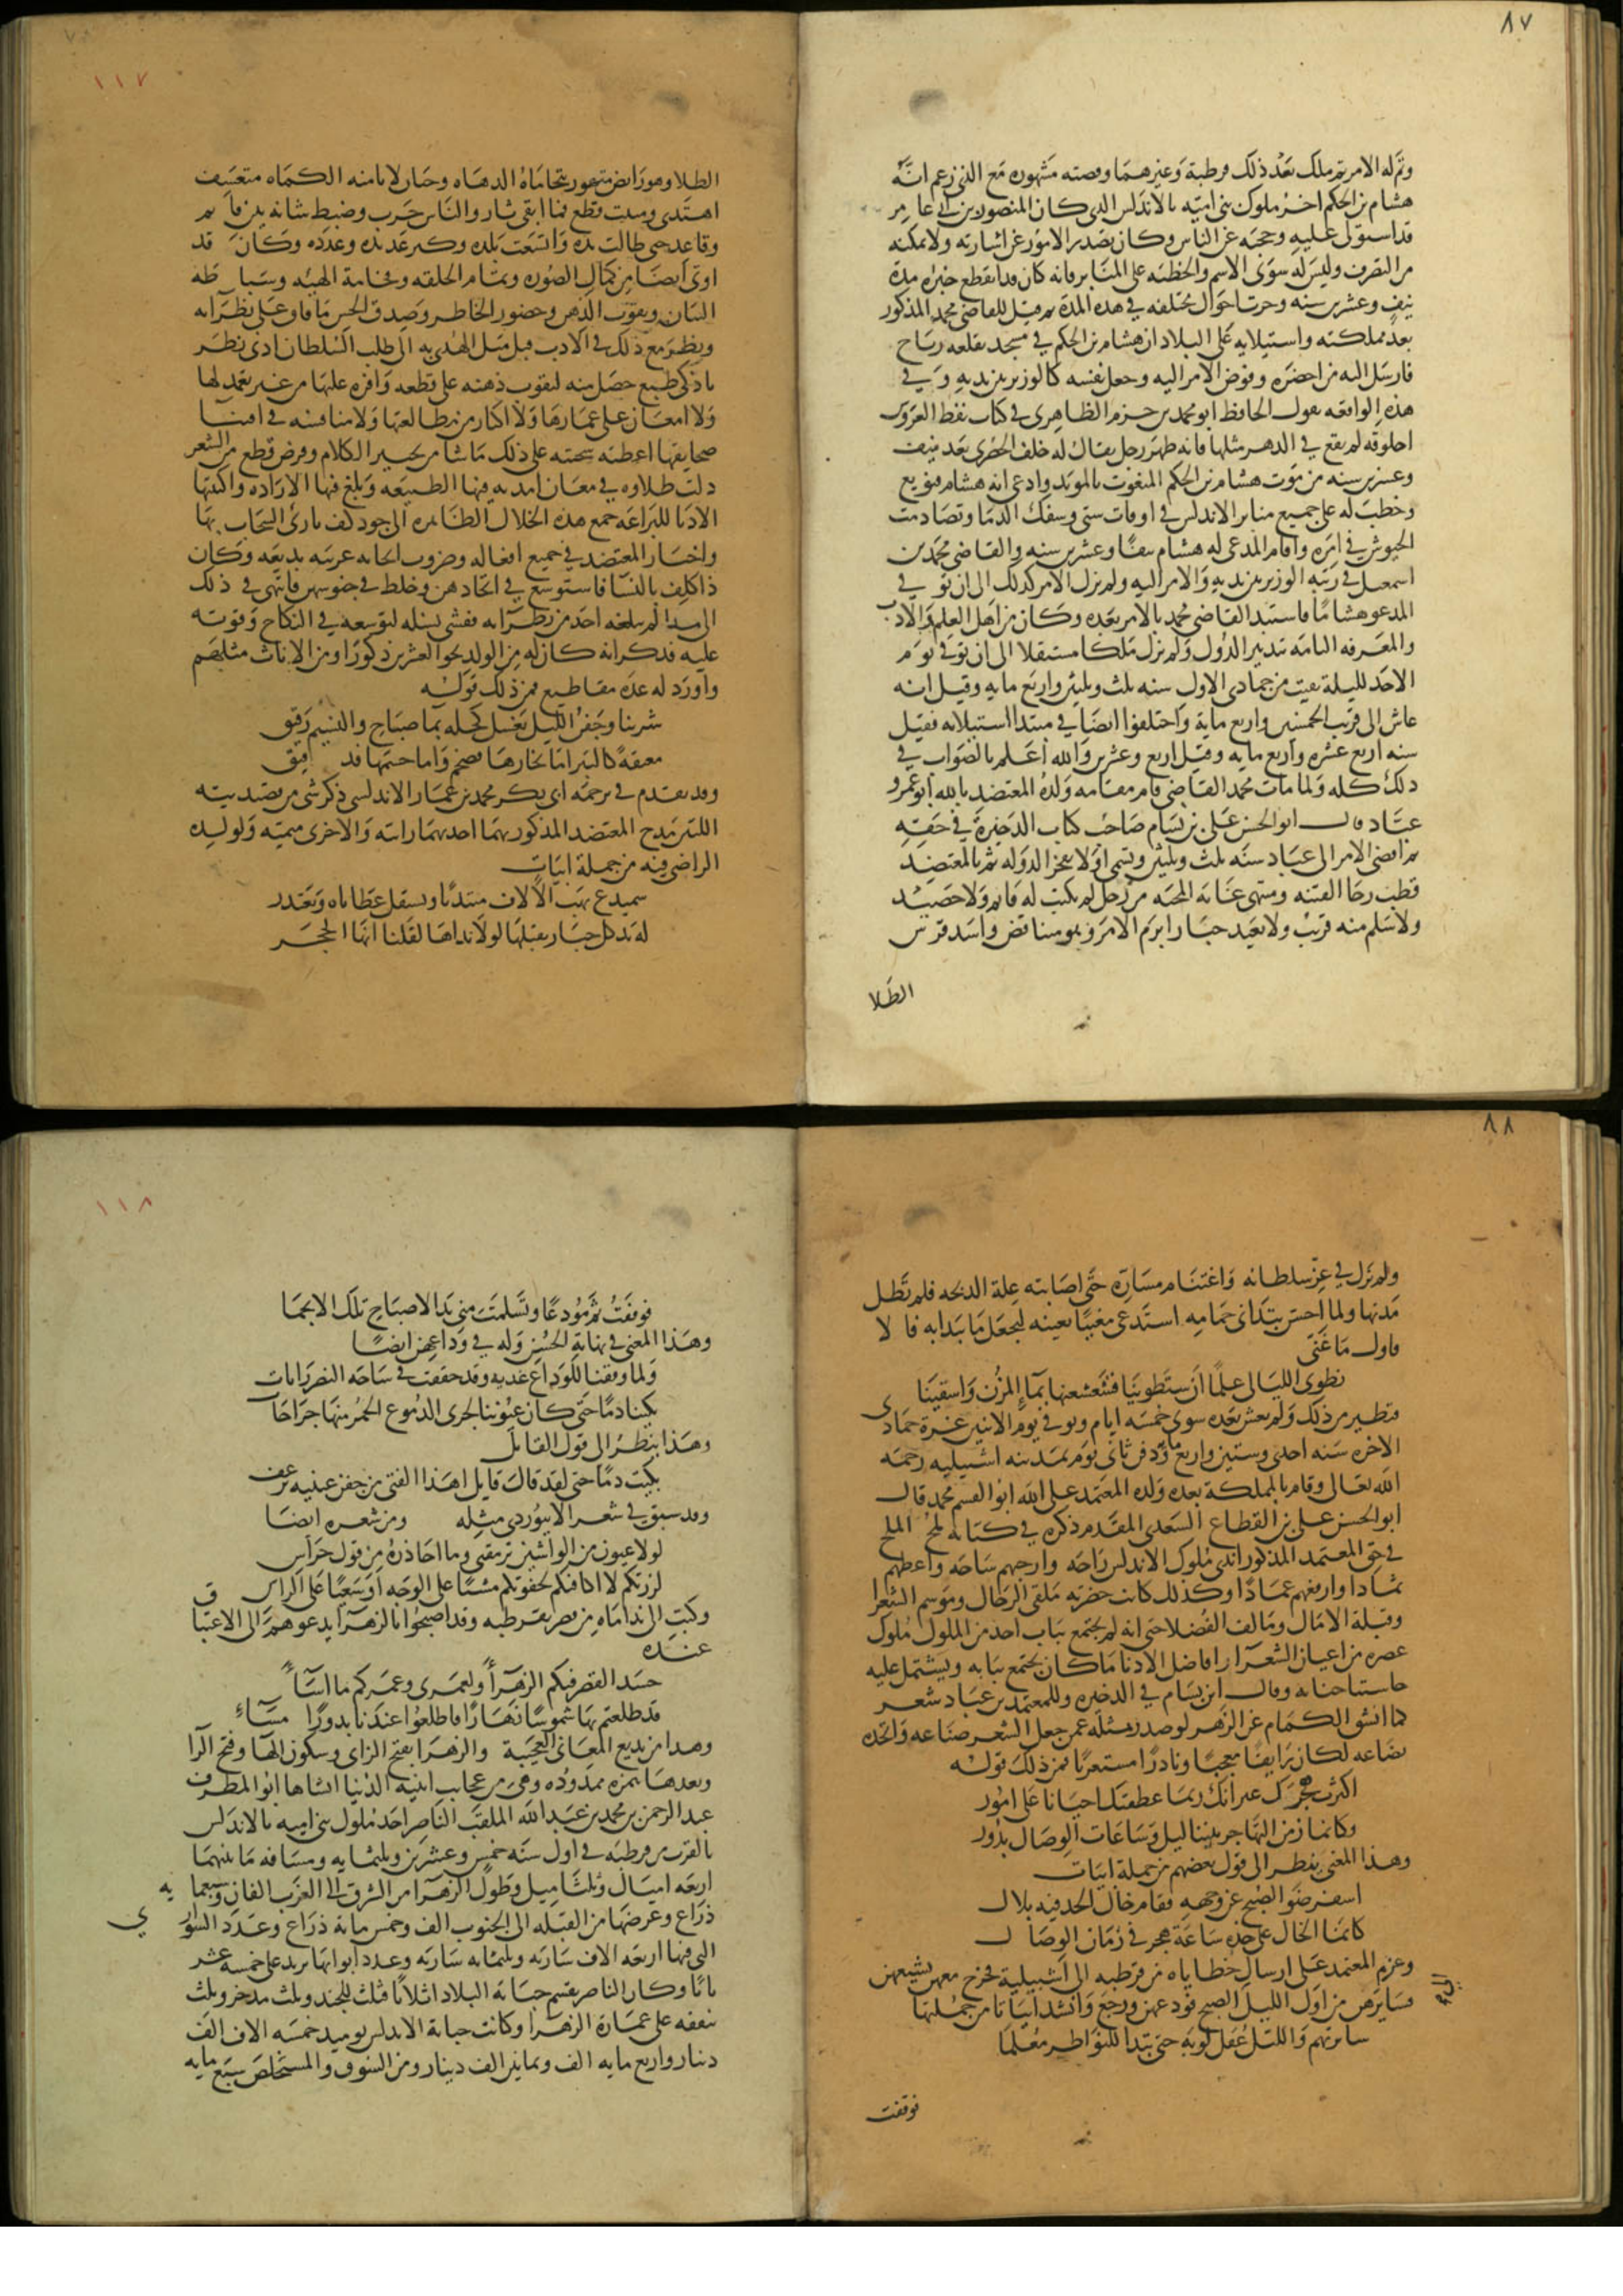 ٨٧
وتم له الامر ثم ملك بعد ذلك قرطبة وغيرهما وقصته مشهوره مع الذي زعم انه
هشام بن الحكم اخر ملوك بني اميه بالاندلس الذي كان المنصور بن ابي عامر
قد استولى عليه وحجبه عن الناس وكان يصدر الامور عن اشارته ولا يمكنه
من التصرف وليس له سوى الاسم والخطبه على المنابر فانه كان قد انقطع خبره مدة
نيف وعشرين سنه وجرت احوال مختلفه في هذه المدة ثم قيل للقاضي محمد المذكور
بعد مملكته واستيلايه على البلاد ان هشام بن الحكم في مسجد بقلعه رباح
فارسل اليه من احضره وفوض الامر اليه وجعل نفسه كالوزير بين يديه وفي
هذه الواقعه يقول الحافظ ابو محمد بن حزم الظاهري في كتاب نقط العروس
اخلوقه لم يقع في الدهر مثلها فانه ظهر رجل يقال له خلف الحضري بعد نيف
وعشرين سنه من موت هشام بن الحكم المنعوت بالمويد وادعى انه هشام فبويع
وخطب له على جميع منابر الاندلس في اوقات شتى وسفك الدما وتصادمت
الجيوش في امره واقام المدعى له هشام نيفًا وعشرين سنه والقاضي محمد بن
اسمعيل في رتبه الوزير بين يديه والامر اليه ولم يزل الامر كذلك الى ان توفي
المدعو هشامًا فاستبد القاضي محمد بالامر بعده وكان من اهل العلم والادب
والمعرفه التامه بتدبير الدول ولم يزل ملكا مستقلا الى ان توفي يوم
الاحد لليلة بقيت من جمادى الاول سنه ثلث وثلثين واربع مايه وقيل انه
عاش الى قريب الخمسين واربع ماية واختلفوا ايضًا في مبتدا استيلايه فقيل
سنه اربع عشره واربع مايه وقيل اربع وعشرين والله اعلم بالصواب في
ذلك كله ولما مات محمد القاضي قام مقامه ولده المعتضد بالله ابو عمرو
عباد قال ابو الحسن علي بن بسام صاحب كتاب الذخيرة في حقه
ثم افضى الامر الى عباد سنه ثلث وثلثين وتسمى اولا بفخر الدوله ثم بالمعتضد
قطب رحا الفتنه ومنتهى غايه المحنه من رجل لم يثبت له قايم ولا حصيد
ولا سلم منه قريب ولا بعيد جبار ابرم الامر وهو متناقض واسد فرس
الطلا
١١٧
الطلا وهو رابض متهور تتحاماه الدهاه وجبار لا تامنه الكماه متعسف
اهتدى ومنبت قطع فما ابقى ثار والناس حرب وضبط شانه بين قايم
وقاعد حتى طالت يده واتسعت بلده وكثر عديده وعدده وكان قد
اوتي ايضًا من كمال الصوره وتمام الخلقه وفخامة الهيئه وسباطه
البنان وثقوب الذهن وحضور الخاطر وصدق الحس ما فاق على نظرايه
ونظر مع ذلك في الادب قبل ميل الهوى به الى طلب السلطان ادنى نظر
باذكى طبع حصل منه لثقوب ذهنه على قطعه وافره علقها من غير تعمد لها
ولا امعان على غمارها ولا اكثار من مطالعتها ولا منافسه في اقتنا
صحايفها اعطته سجيته على ذلك ما شا من تحبير الكلام وقرض قطع من الشعر
ذات طلاوه في معان امدته فيها الطبيعه وبلغ فيها الاراده واكتتبها
الادبا للبراعه جمع هذه الخلال الظاهره الى جود كف بارى السحاب بها
واخبار المعتضد في جميع افعاله وضروب انحايه غريبه بديعه وكان
ذا كلف بالنسا فاستوسع في اتخاذهن وخلط في جنوسهن فانتهى في ذلك
الى مدا لم يبلغه احد من نظرايه ففشى نسله لتوسعه في النكاح وقوته
عليه فذكر انه كان له من الولد نحو العشرين ذكورًا ومن الاناث مثلهم
واورد له عده مقاطيع فمن ذلك قوله
شربنا وجفن الليل يغسل كحله بما صباح والنسيم رقيق
معتقة كالتبر اما نجارها فضخم واما جسمها فدقيق
وقد تقدم في ترجمه ابي بكر محمد بن عمار الاندلسي ذكر شي من قصيدتيه
اللتين مدح المعتضد المذكور بهما احدهما رايته والاخرى ميميته ولولده
الراضي فيه من جملة ابيات
سميدع يهب الالاف مبتديًا ويستقل عطاياه ويعتذر
له يد كل جبار يقبلها لولا نداها لقلنا انها الحجر
٨٨
ولم يزل في عز سلطانه واغتنام مساره حتى اصابته علة الذبحه فلم تطل
مدتها ولما احس بتداني حمامه استدعى مغنيًا يغنيه ليجعل ما يبدا به فالا
فاول ما غنى
نطوى الليالي علمًا ان ستطوينا فشعشعنها بماء المزن واسقينا
فتطير من ذلك ولم يعش بعده سوى خمسه ايام وتوفي يوم الاثنين غرة جمادى
الاخره سنه احدى وستين واربع مايه ودفن ثاني يوم بمدينه اشبيليه رحمه
الله تعالى وقام بالمملكة بعده ولده المعتمد على الله ابو القسم محمد قال
ابو الحسن علي بن القطاع السعدي المقدم ذكره في كتابه لمح الملح
في حق المعتمد المذكور اندى ملوك الاندلس راحه وارحبهم ساحه واعظمهم
ثمادا وارفعهم عمادًا وكذلك كانت حضرته ملقى الرحال وموسم الشعرا
وقبلة الامال ومالف الفضلا حتى انه لم يجتمع بباب احد من الملوك ملوك
عصره من اعيان الشعراء وافاضل الادبا ما كان يجتمع ببابه ويشتمل عليه
حاشيتا جنابه وقال ابن بسام في الذخيره وللمعتمد بن عباد شعر
كما انشق الكمام عن الزهر لو صدر مثله عمن جعل الشعر صناعه واتخذه
بضاعه لكان رايقًا معجبًا ونادرًا مستغربًا فمن ذلك قوله
اكثرت هجرك غير انك ربما عطفتك احيانا على امور
وكانما زمن التهاجر بيننا ليل وساعات الوصال بدور
وهذا المعنى ينظر الى قول بعضهم من جملة ابيات
اسفر ضو الصبح عن وجهه فقام خال الخد فيه بلال
كانما الخال على خده ساعة هجر في زمان الوصال
وعزم المعتمد على ارسال حظاياه من قرطبه الى اشبيلية فخرج معهن يشيعهن
فسايرهن من اول الليل الصبح فودعهن ورجع وانشد ابياتا من جملتها
سايرتهم والليل غفل ثوبه حتى تبدا للنواظر معلما
فوقفت
١١٨
فوقفت ثم مودعًا وتسلمت مني يد الاصباح تلك الانجما
وهذا المعنى في نهاية الحسن وله في وداعهن ايضًا
ولما وقفنا للوداع غديه وقد خفقت في ساحه القصر رايات
بكينا دمًا حتى كان عيوننا لجرى الدموع الحمر منها جراحات
وهذا ينظر الى قول القايل
بكيت دمًا حتى لقد قال قايل اهذا الفتى من جفن عينيه يرعف
وقد سبق في شعر الابيوردي مثله ومن شعره ايضا
لولا عيون من الواشين ترمقني وما احاذره من قول حراس
لزرتكم لا اكافيكم بجفوتكم مشيًا على الوجه او سعيًا على الراس
وكتب الى نداماه من قصر بقرطبه وقد اصبحوا بالزهرا يدعوهم الى الاغتباق
عنده
حسد القصر فيكم الزهراء ولعمري وعمركم ما اساء
قد طلعتم بها شموسًا نهارًا فاطلعوا عندنا بدورًا مساء
وهذا من بديع المعاني العجيبة والزهرا بفتح الزاي وسكون الها وفتح الرا
وبعدها همزه ممدوده وهي من عجايب ابنيه الدنيا انشاها ابو المطرف
عبد الرحمن بن محمد بن عبد الله الملقب الناصر احد ملوك بني اميه بالاندلس
بالقرب من قرطبه في اول سنه خمس وعشرين وثلثمايه ومسافه ما بينهما
اربعه اميال وثلثا ميل وطول الزهرا من الشرق الى الغرب الفان وسبعمايه
ذراع وعرضها من القبله الى الجنوب الف وخمس مائة ذراع وعدد السواري
التي فيها اربعه الاف ساريه وثلثمايه ساريه وعدد ابوابها يزيد على خمسه عشر
بابًا وكان الناصر يقسم جباية البلاد اثلاثًا فثلث للجند وثلث مدخر وثلث
ينفقه على عمارة الزهرا وكانت جباية الاندلس يوميذ خمسه الاف الف
دينار واربع مايه الف وثمانين الف دينار ومن السوق والمستخلص سبع مايه